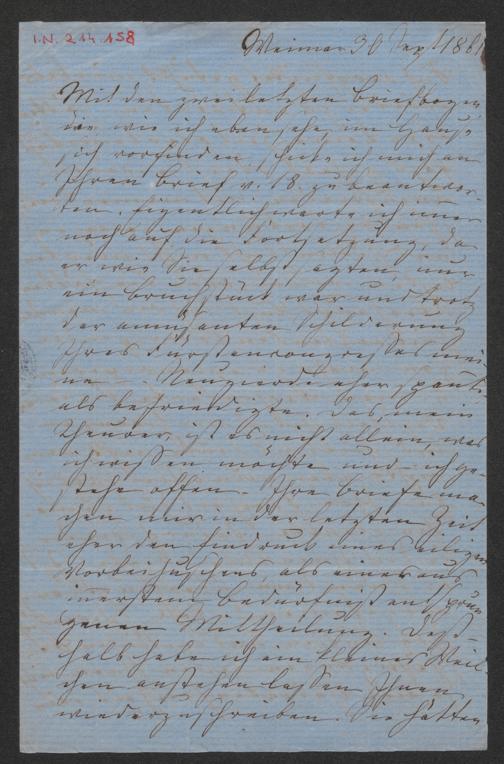 I.N. 214.158
Weimar 30 Sept 186
Mit den zwei letzten Briefbogen
die wie ich eben sehe, im Hause
sich vorfinden, schicke ich mich an
Ihren Brief v. 18. zu beantwor-
ten. Eigentlich warte ich immer
noch auf die Fortsetzung, da
er wie Sie selbst sagten, nur
ein Bruchstück war und trotz
der amüsanten Schilderung
Ihres Fürstencongresses mei-
ne – Neugierde eher spannte
als befriedigte. Das, mein
Theurer, ist es nicht allein, was
ich wissen möchte und – ich ge-
stehe offen – Ihre Briefe ma-
chen mir in der letzten Zeit
eher den Eindruck eines eiligen
Vorbeihuschens, als einer aus
innerstem Bedürfniß entsprun
genen Mittheilung. Deß-
halb habe ich ein kleines Weil-
chen anstehen lassen Ihnen
wiederzuschreiben. Sie hätten